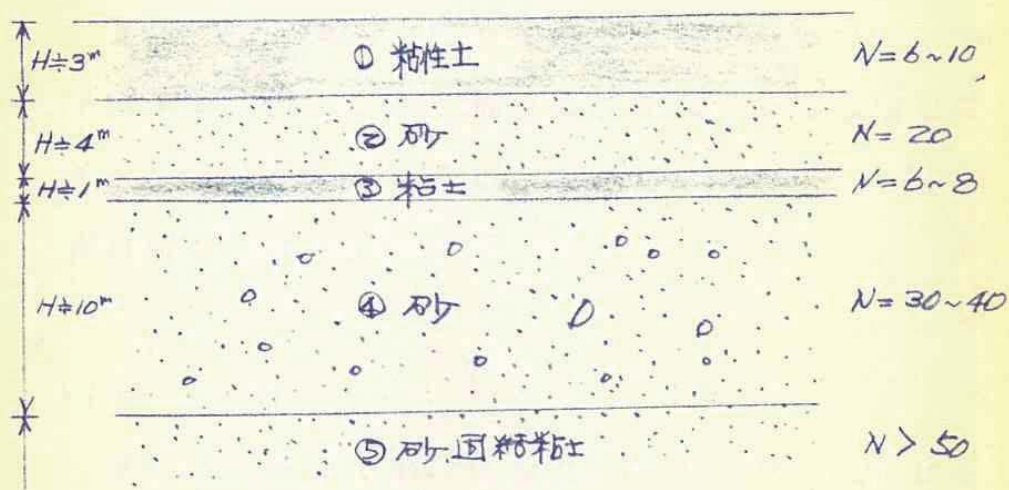 H≒3m ① 粘性土 N=6~10
H≒4m ② 砂 N=20
H≒1m ③ 粘土 N=6~8
H≒10m ④ 砂 N=30~40
⑤ 砂.固粘土 N>50